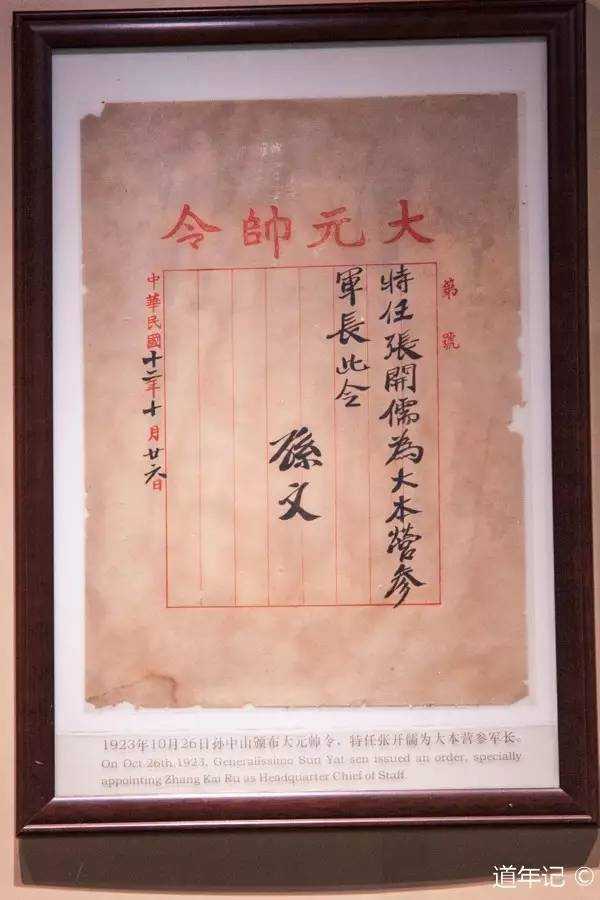 大元帥令
第 號
特任張開儒為大本營參
軍長此令
孫文
中華民國十二年十月廿六日
1923年10月26日孙中山颁布大元帅令，特任张开儒为大本营参军长。
On Oct.26th,1923, Generalissimo Sun Yat sen issued an order, specially
appointing Zhang Kai Ru as Headquarter Chief of Staff.
道年记 ©